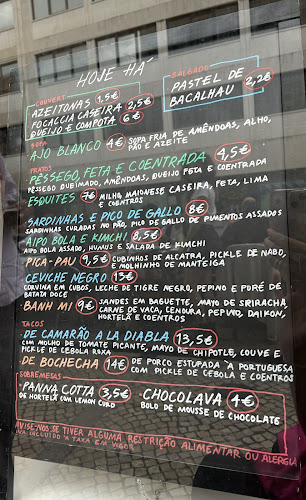 HOJE HÁ
COUVERT
AZEITONAS 1,5€
FOCACCIA CASEIRA 2,5€
QUEIJO E COMPOTA 6€
SALGADO
PASTEL DE
BACALHAU 2,2€
SOPA
AJO BLANCO 4€ SOPA FRIA DE AMÊNDOAS, ALHO,
PÃO E AZEITE
PRATOS
PÊSSEGO, FETA E COENTRADA 4,5€
PÊSSEGO QUEIMADO, AMÊNDOAS, QUEIJO FETA E COENTRADA
ESQUITES 7€ MILHO, MAIONESE CASEIRA, FETA, LIMA
E COENTROS
SARDINHAS E PICO DE GALLO 8€
SARDINHAS CURADAS NO PÃO, PICO DE GALLO DE PIMENTOS ASSADOS
AIPO BOLA E KIMCHI 8,5€
AIPO BOLA ASSADO, HUMUS E SALADA DE KIMCHI
PICA-PAU 9,5€ CUBINHOS DE ALCATRA, PICKLE DE NABO,
E MOLHINHO DE MANTEIGA
CEVICHE NEGRO 13€
CORVINA EM CUBOS, LECHE DE TIGRE NEGRO, PEPINO E PURÉ DE
BATATA DOCE
BANH MI 9€ SANDES EM BAGUETTE, MAYO DE SRIRACHA,
CARNE DE VACA, CENOURA, PEPINO, DAIKON,
HORTELÃ E COENTROS
TACOS
DE CAMARÃO A LA DIABLA 13,5€
COM MOLHO DE TOMATE PICANTE, MAYO DE CHIPOTLE, COUVE E
PICKLE DE CEBOLA ROXA
DE BOCHECHA 14€ DE PORCO ESTUPADA À PORTUGUESA
COM PICKLE DE CEBOLA E COENTROS
SOBREMESAS
PANNA COTTA 3,5€
DE HORTELÃ COM LEMON CURD
CHOCOLAVA 4€
BOLO DE MOUSSE DE CHOCOLATE
AVISE-NOS SE TIVER ALGUMA RESTRIÇÃO ALIMENTAR OU ALERGIA
IVA INCLUÍDO À TAXA EM VIGOR